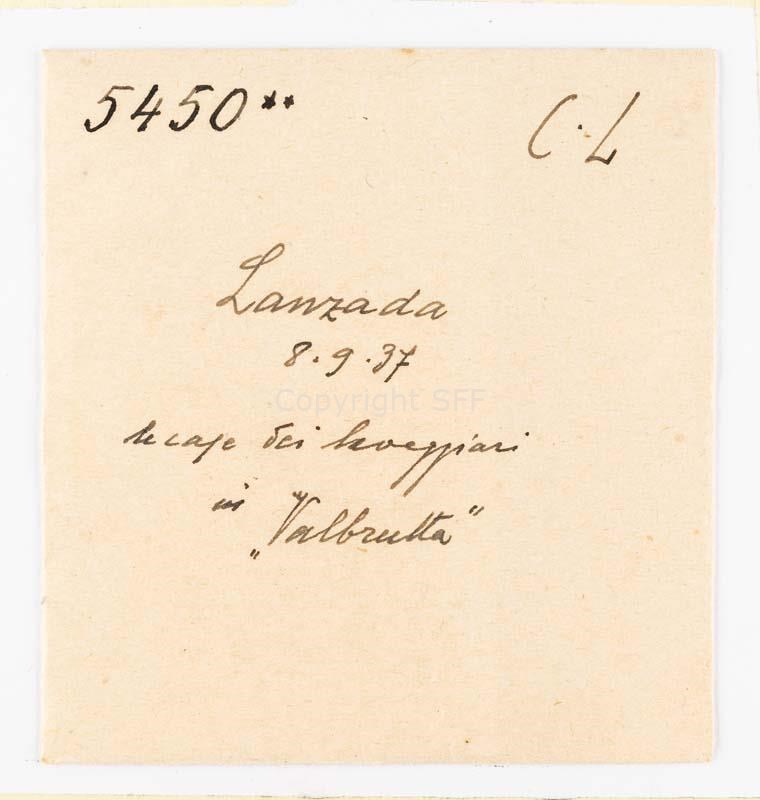 5450** C. L
Lanzada
8.9.37
Copyright SFF
le case dei laveggiari
in
„Valbrutta"